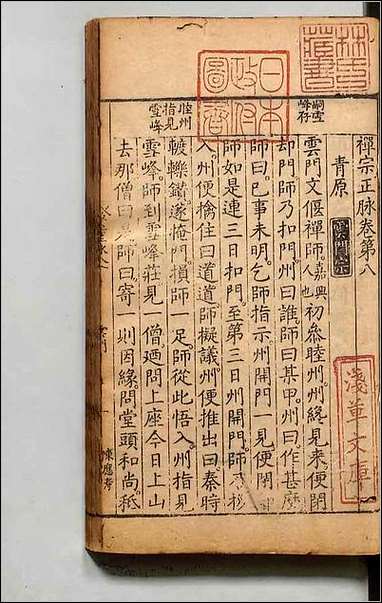 禪宗正脉卷第八
青原 雲門宗
雲門文偃禪師嘉興人也初參睦州州終見來便閉
却門師乃扣門州曰誰師曰某甲州曰作甚麽
師曰巳事未明乞師指示州開門一見便閉
師如是連三日扣門至第三日州開門師
入州便擒住曰道道師擬議州便推出曰秦時
𨍏轢鑽遂掩門損師一足師從此悟入州指見
雪峰師到雪峰莊見一僧廼問上座今日上山
去那僧曰是師曰寄一則因緣問堂頭和尚秪
嗣雪峰存
睦州指見雪峰
林氏藏書
日本政府圖書
淺草文庫